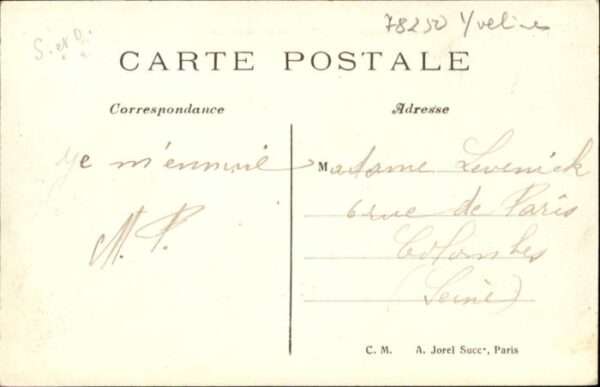 78250 Yvelines
S. et O.
CARTE POSTALE
Correspondance
Adresse
Je m'ennuie
M. P.
Madame Levenick
6 rue de Paris
Colombes
(Seine)
C. M. A. Jorel Succr, Paris